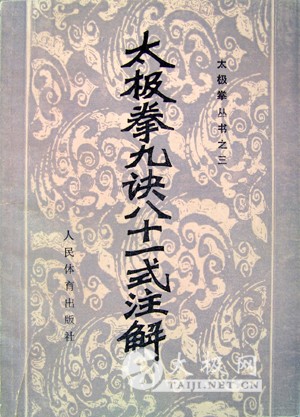 太极拳丛书之三
太极拳九诀八十一式注解
人民体育出版社
太极网
TAIJI.NET.CN